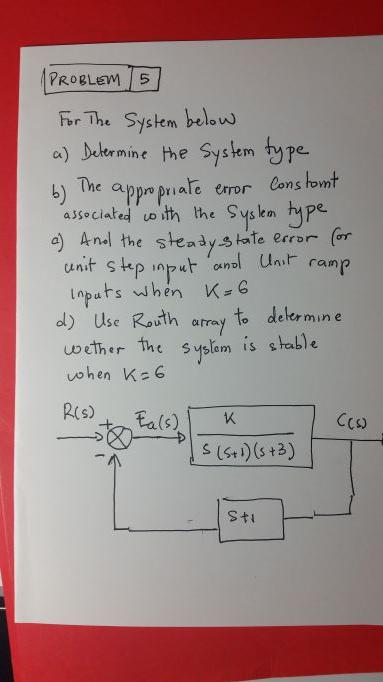 PROBLEM 5
For The System below
a) Determine the System type
b) The appropriate error Constant
associated with the System type
c) And the steady state error for
unit step input and Unit ramp
Inputs when K=6
d) Use Routh array to determine
wether the system is stable
when K=6
R(s) + Ea(s) K C(s)
-
S (S+1)(S+3)
S+1